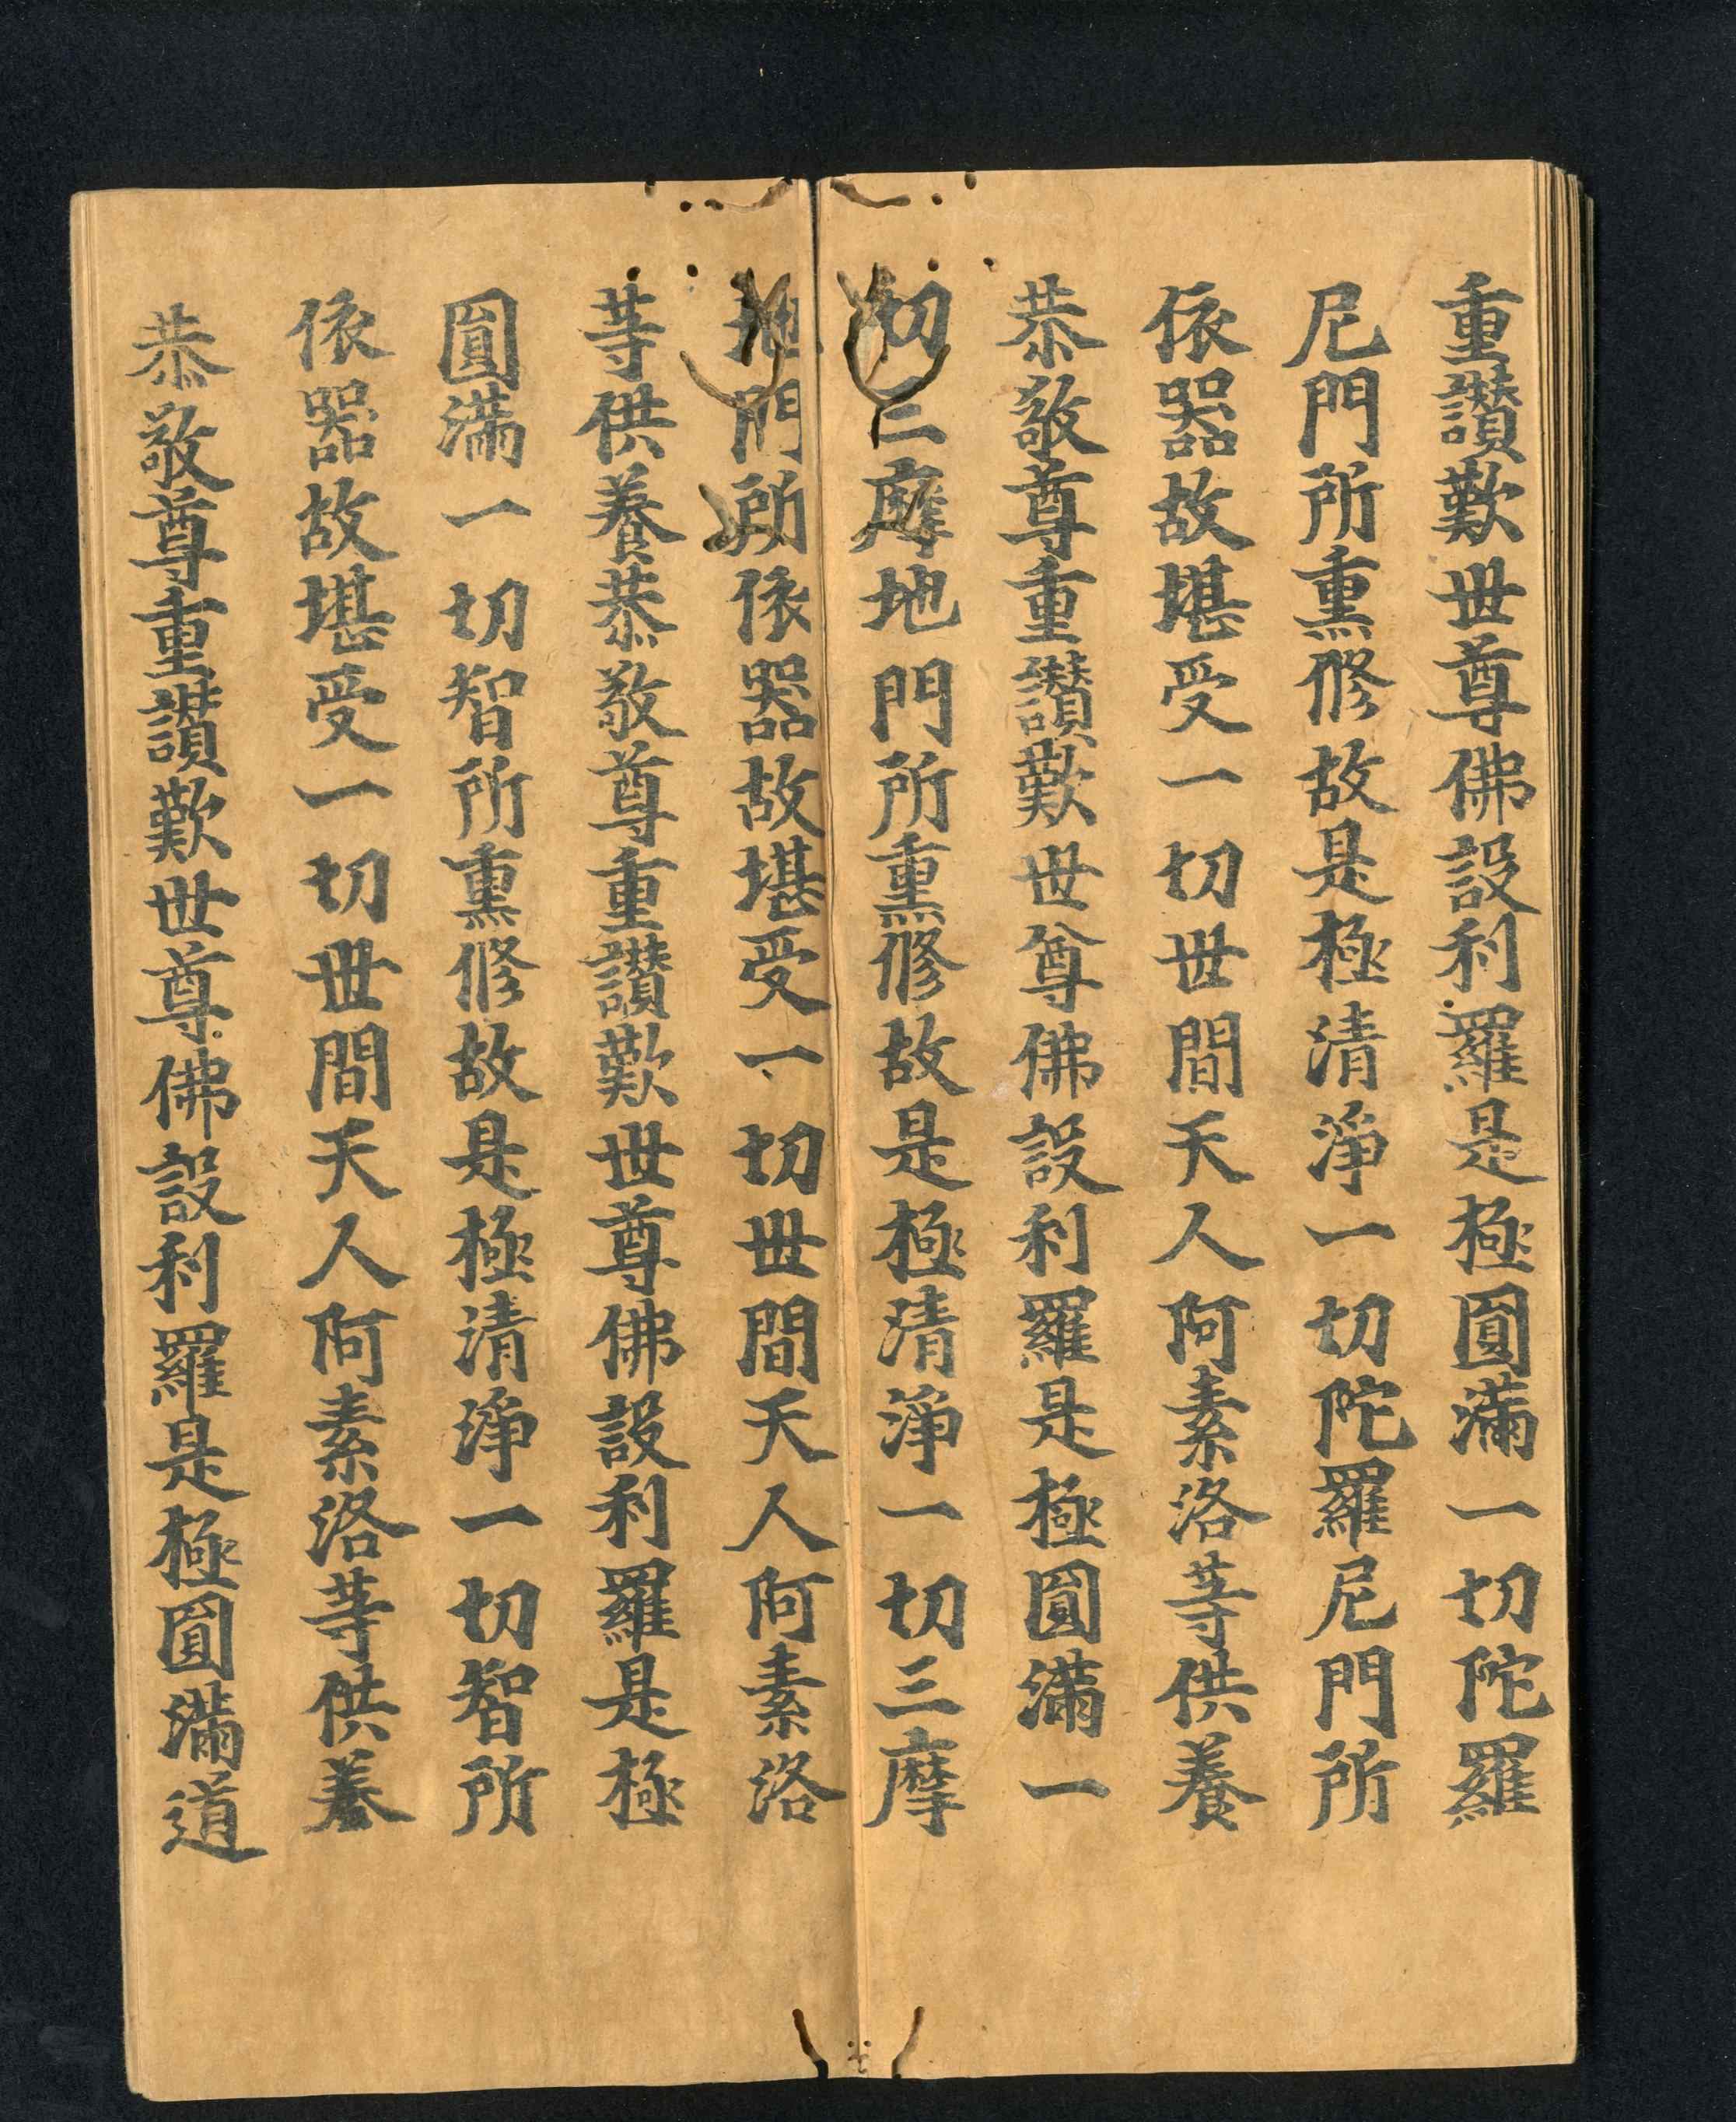 重讃歎世尊佛設利羅是極圓滿一切陀羅
尼門所熏修故是極清淨一切陀羅尼門所
依器故堪受一切世間天人阿素洛等供養
恭敬尊重讃歎世尊佛設利羅是極圓滿一
切三摩地門所熏修故是極清淨一切三摩
地門所依器故堪受一切世間天人阿素洛
等供養恭敬尊重讃歎世尊佛設利羅是極
圓滿一切智所熏修故是極清淨一切智所
依器故堪受一切世間天人阿素洛等供養
恭敬尊重讃歎世尊佛設利羅是極圓滿道